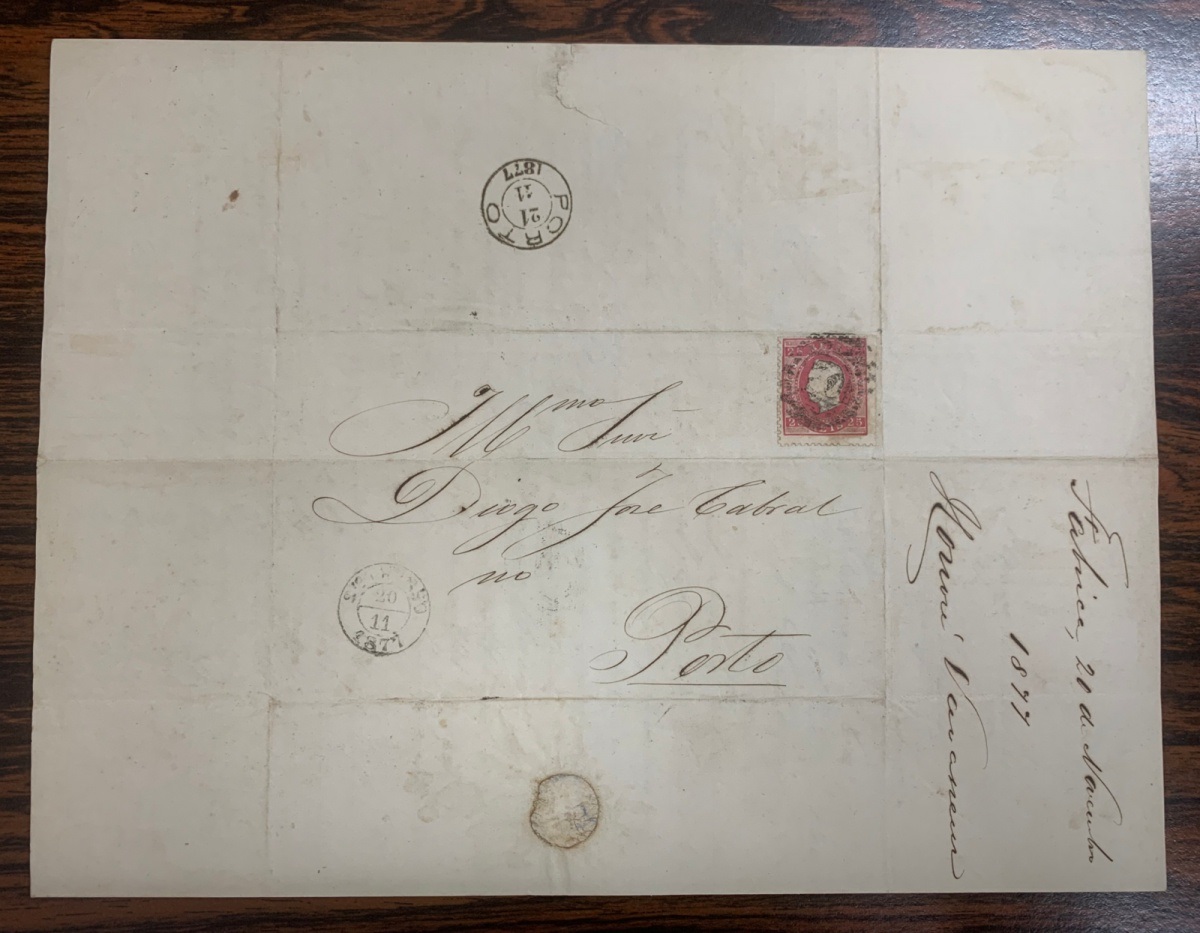 PORTO
21
11
1877
25 25
Illmo Snr
Diogo José Cabral
no
Porto
20
11
1877
Fabrica, 20 de Novembro
1877
Honoré